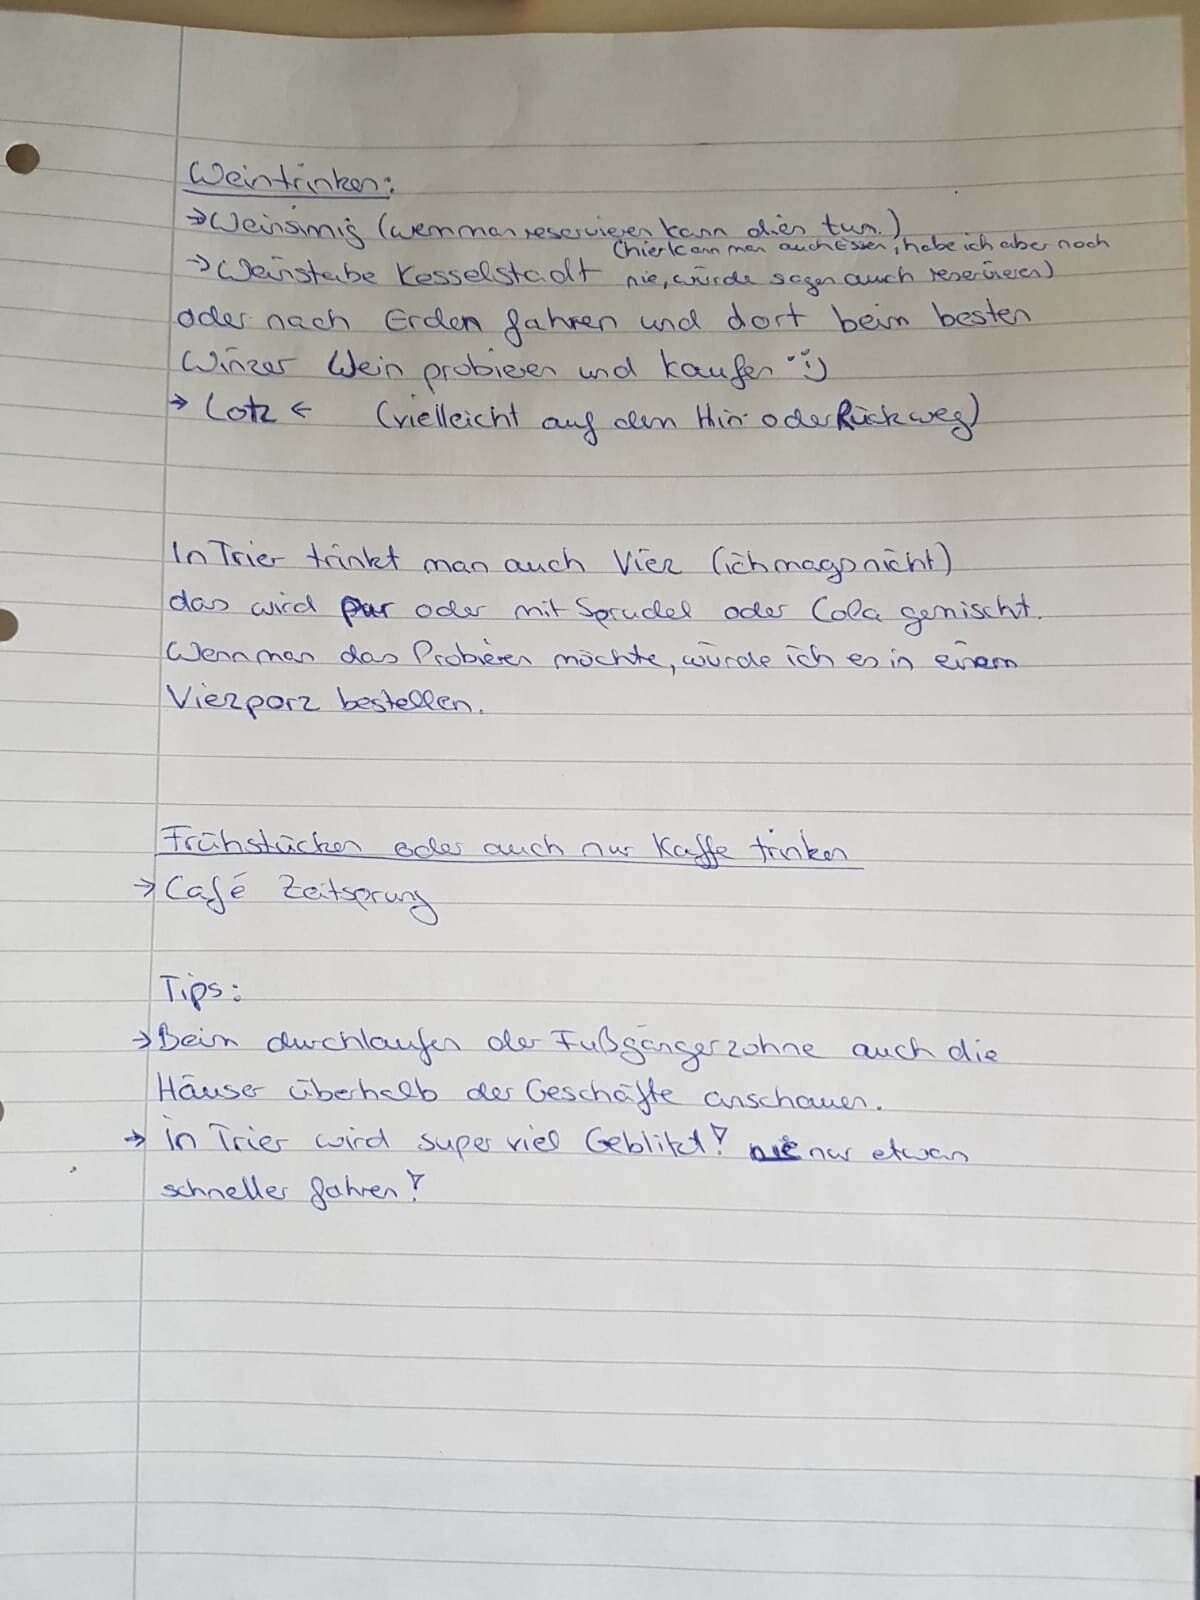 Weintrinken:
→ Weinsinnig (wenn man reservieren kann dies tun.)
(hier kann man auch Essen, habe ich aber noch
→ Weinstube Kesselstadt nie, würde sagen auch reservieren)
oder nach Erden fahren und dort beim besten
Winzer Wein probieren und kaufen :)
→ Lotz ← (vielleicht auf den Hin- oder Rückweg)
In Trier trinkt man auch Viez (ich mags nicht)
das wird pur oder mit Sprudel oder Cola gemischt.
Wenn man das Probieren möchte, würde ich es in einem
Viezporz bestellen.
Frühstücken oder auch nur Kaffe trinken
→ Café Zeitsprung
Tips:
→ Beim durchlaufen der Fußgängerzohne auch die
Häuser überhalb der Geschäfte anschauen.
→ in Trier wird super viel Geblitzt! nie nur etwas
schneller fahren!